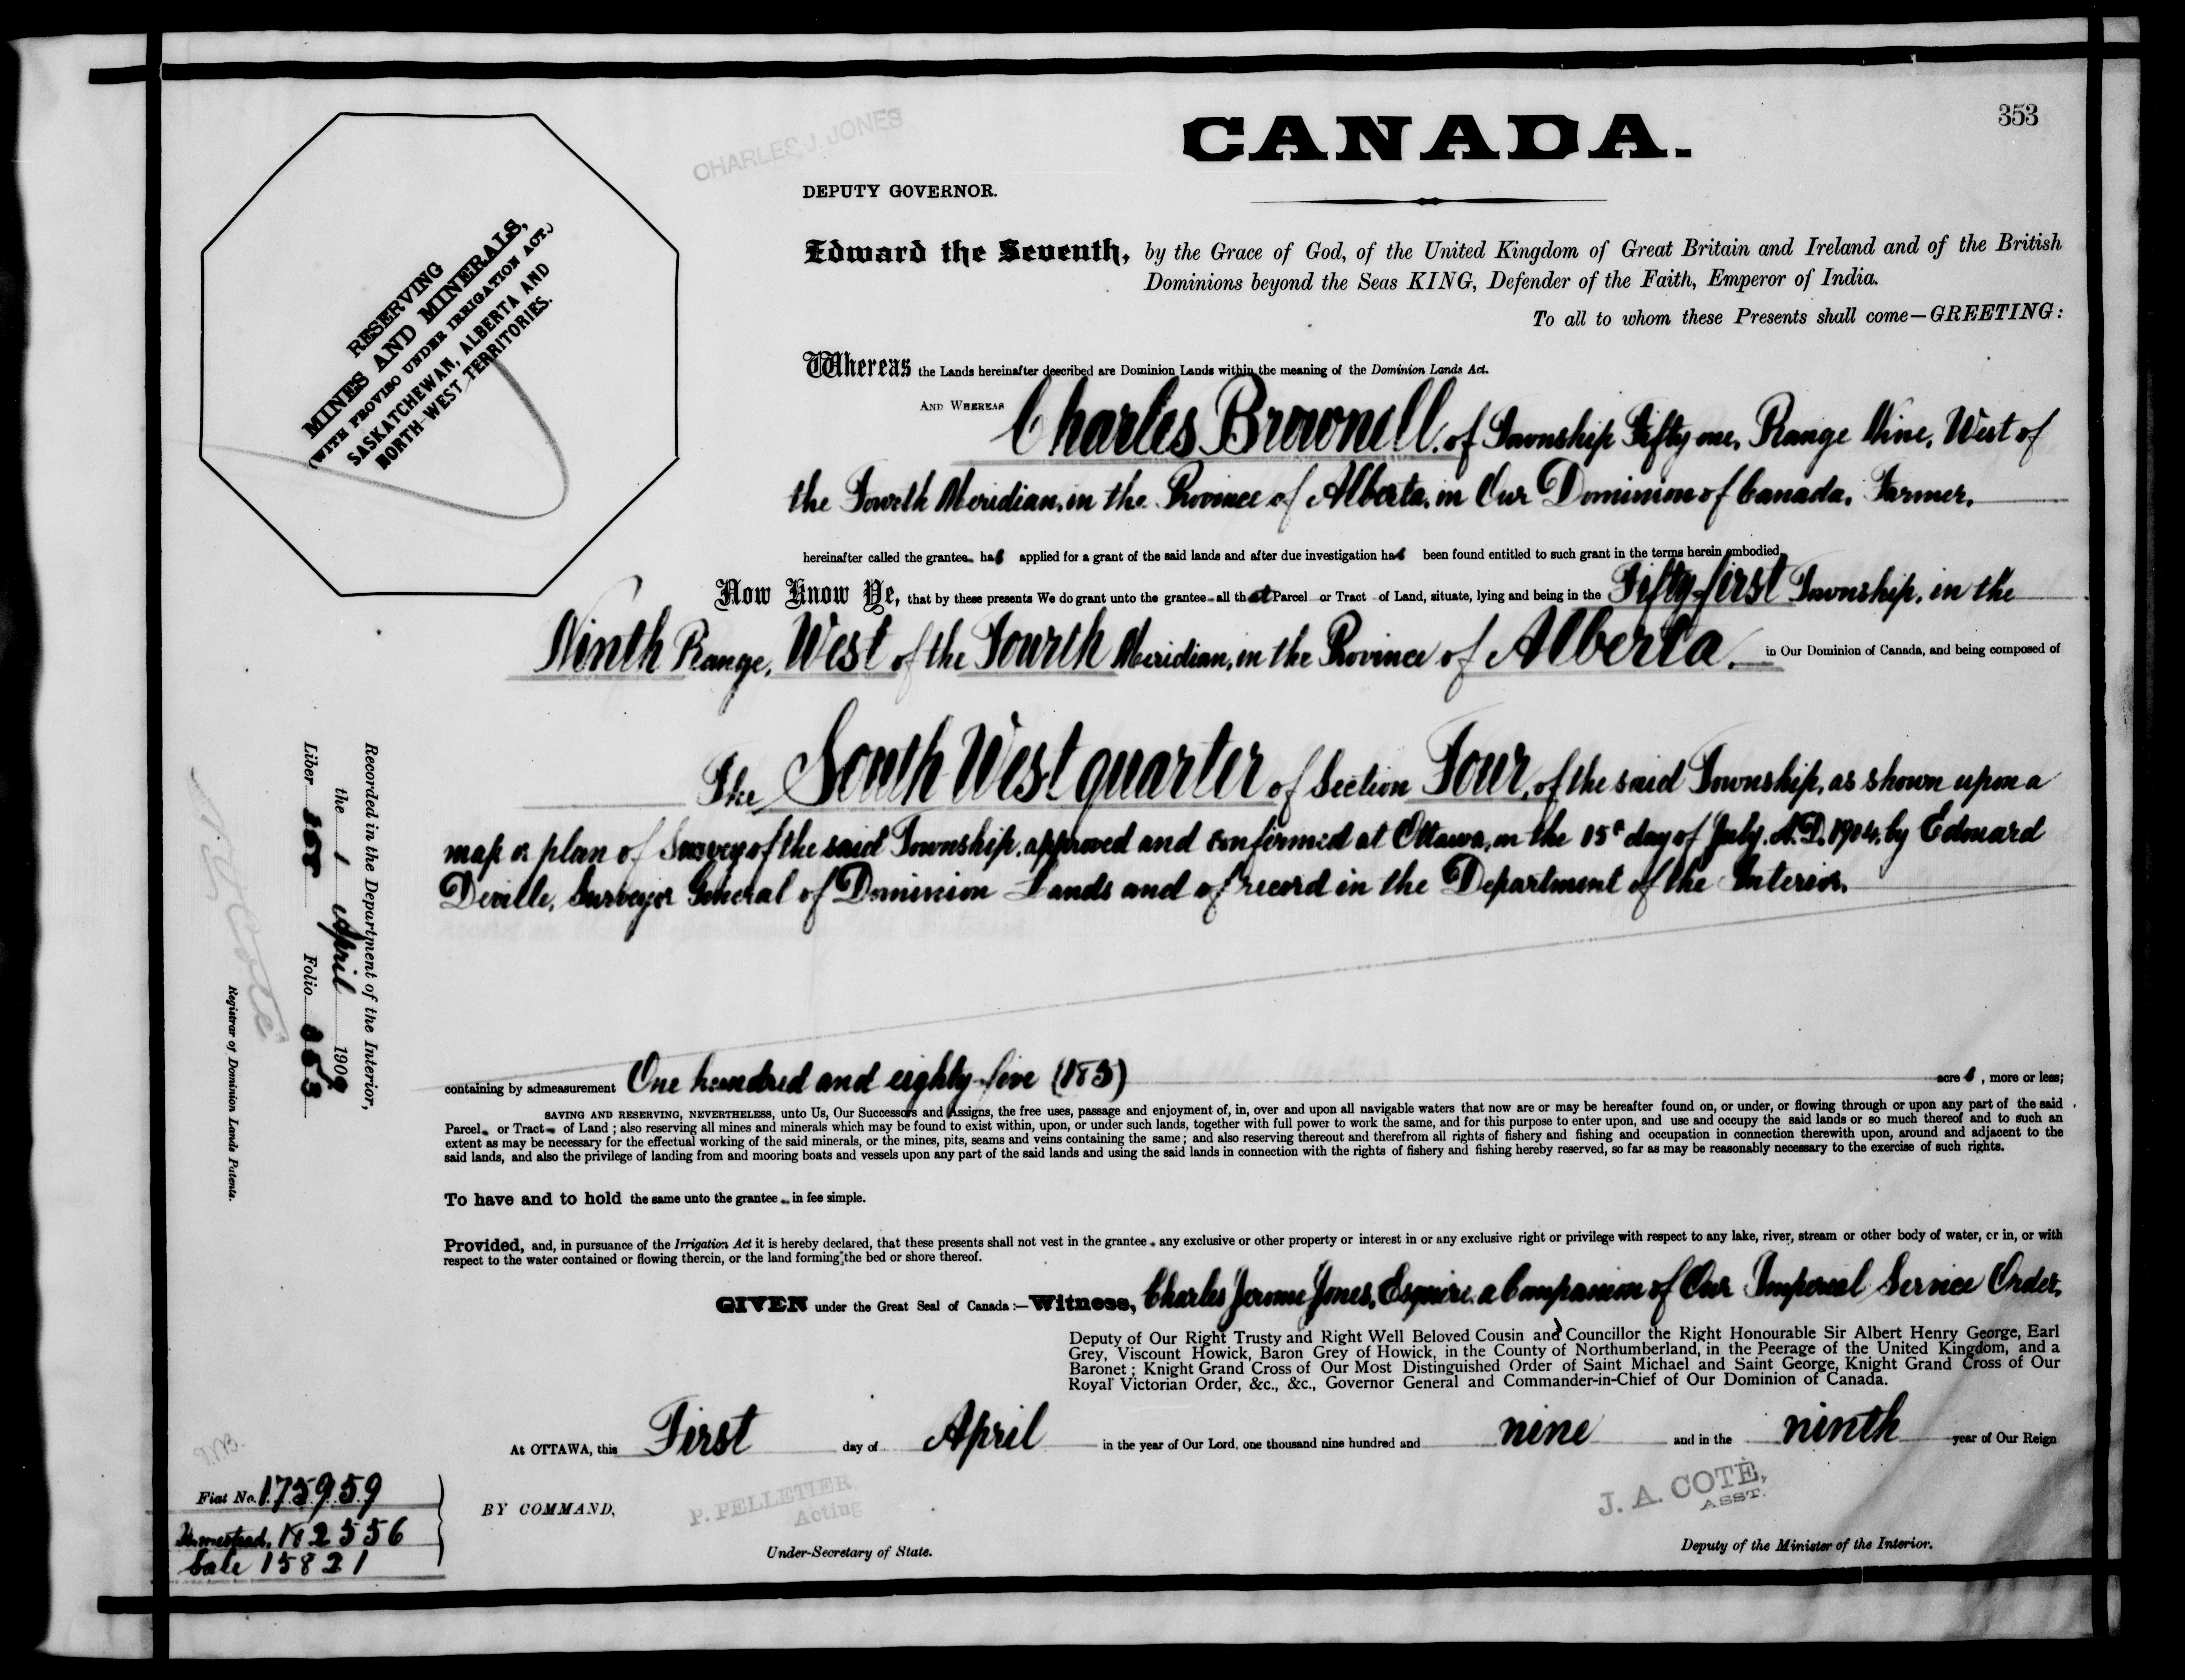 353
CHARLES J. JONES
CANADA.
DEPUTY GOVERNOR.
RESERVING
MINES AND MINERALS,
(WITH PROVISO UNDER IRRIGATION ACT.)
SASKATCHEWAN, ALBERTA AND
NORTH-WEST TERRITORIES.
Edward the Seventh, by the Grace of God, of the United Kingdom of Great Britain and Ireland and of the British
Dominions beyond the Seas KING, Defender of the Faith, Emperor of India.
To all to whom these Presents shall come—GREETING:
Whereas the Lands hereinafter described are Dominion Lands within the meaning of the Dominion Lands Act.
AND WHEREAS Charles Brownell, of Township Fifty one, Range Nine, West of
the Fourth Meridian, in the Province of Alberta, in Our Dominion of Canada, Farmer,
hereinafter called the grantee has applied for a grant of the said lands and after due investigation has been found entitled to such grant in the terms herein embodied,
Now Know Ye, that by these presents We do grant unto the grantee all that Parcel or Tract of Land, situate, lying and being in the Fifty-first Township, in the
Ninth Range, West of the Fourth Meridian, in the Province of Alberta, in Our Dominion of Canada, and being composed of
The South West quarter of Section Four, of the said Township, as shown upon a
map or plan of Survey of the said Township, approved and confirmed at Ottawa, on the 15th day of July, A.D. 1904, by Edouard
Deville, Surveyor General of Dominion Lands and of record in the Department of the Interior.
containing by admeasurement One hundred and eighty-five (185) acres, more or less;
SAVING AND RESERVING, NEVERTHELESS, unto Us, Our Successors and Assigns, the free uses, passage and enjoyment of, in, over and upon all navigable waters that now are or may be hereafter found on, or under, or flowing through or upon any part of the said
Parcel or Tract of Land; also reserving all mines and minerals which may be found to exist within, upon, or under such lands, together with full power to work the same, and for this purpose to enter upon, and use and occupy the said lands or so much thereof and to such an
extent as may be necessary for the effectual working of the said minerals, or the mines, pits, seams and veins containing the same; and also reserving thereout and therefrom all rights of fishery and fishing and occupation in connection therewith upon, around and adjacent to the
said lands, and also the privilege of landing from and mooring boats and vessels upon any part of the said lands and using the said lands in connection with the rights of fishery and fishing hereby reserved, so far as may be reasonably necessary to the exercise of such rights.
To have and to hold the same unto the grantee in fee simple.
Provided, and, in pursuance of the Irrigation Act it is hereby declared, that these presents shall not vest in the grantee any exclusive or other property or interest in or any exclusive right or privilege with respect to any lake, river, stream or other body of water, or in, or with
respect to the water contained or flowing therein, or the land forming the bed or shore thereof.
GIVEN under the Great Seal of Canada:—Witness, Charles Jerome Jones, Esquire, a Companion of Our Imperial Service Order,
Deputy of Our Right Trusty and Right Well Beloved Cousin and Councillor the Right Honourable Sir Albert Henry George, Earl
Grey, Viscount Howick, Baron Grey of Howick, in the County of Northumberland, in the Peerage of the United Kingdom, and a
Baronet; Knight Grand Cross of Our Most Distinguished Order of Saint Michael and Saint George, Knight Grand Cross of Our
Royal Victorian Order, &c., &c., Governor General and Commander-in-Chief of Our Dominion of Canada.
At OTTAWA, this First day of April in the year of Our Lord, one thousand nine hundred and nine and in the ninth year of Our Reign
BY COMMAND,
P. PELLETIER,
Acting
Under-Secretary of State.
J. A. COTÉ,
ASST.
Deputy of the Minister of the Interior.
Recorded in the Department of the Interior,
the 1 April 1909
Liber Folio 353
N. O. Coté
Registrar of Dominion Lands Patents.
Fiat No. 175959
Homestead. 182556
Sale 15821